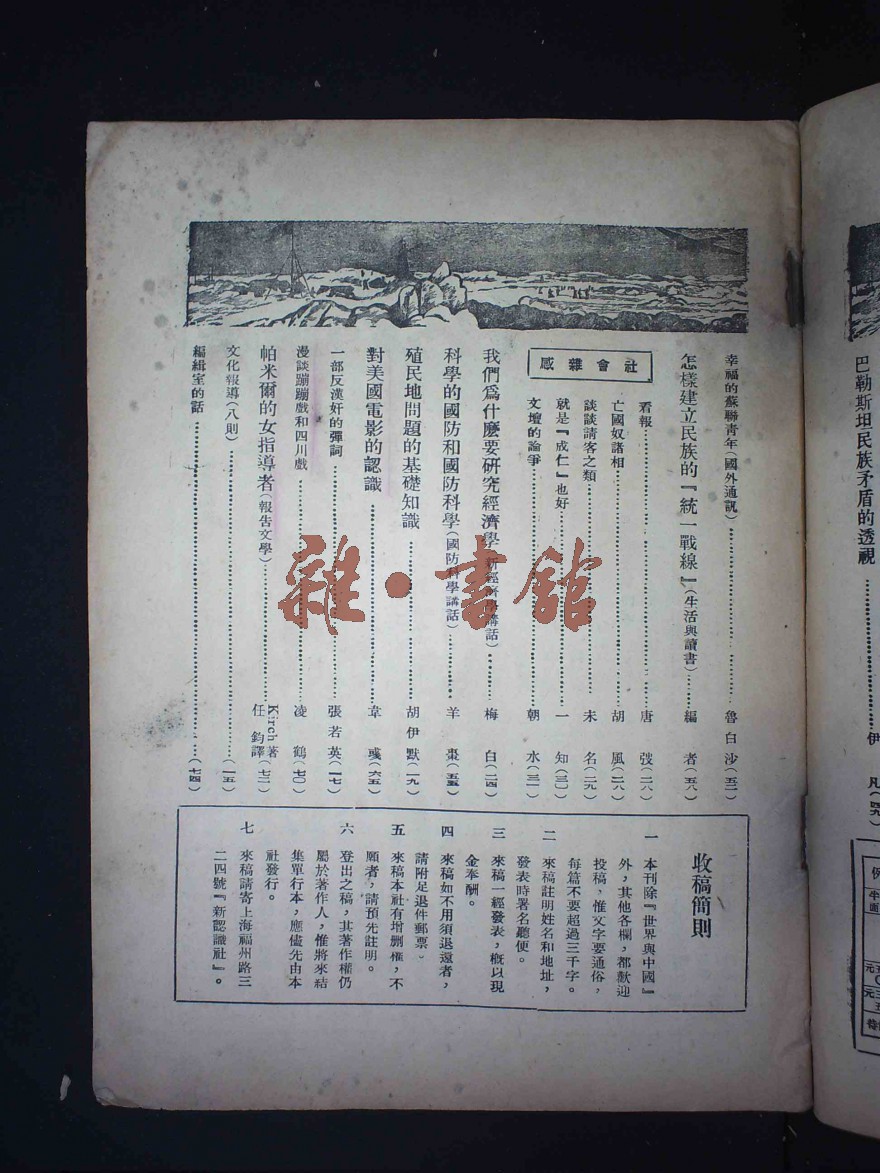 幸福的蘇聯青年(國外通訊)⋯⋯魯白沙(五二)
怎樣建立民族的『統一戰線』(生活與讀書)⋯⋯編者(五八)
社會雜感
看報⋯⋯唐弢(二八)
亡國奴諸相⋯⋯胡風(二八)
談談請客之類⋯⋯未名(二九)
就是『成仁』也好⋯⋯一知(三〇)
文壇的論爭⋯⋯朝水(三一)
我們為什麼要研究經濟學(新經濟學講話)⋯⋯梅白(二四)
科學的國防和國防科學(國防科學講話)⋯⋯羊棗(五五)
殖民地問題的基礎知識⋯⋯胡伊默(一九)
對美國電影的認識⋯⋯韋彧(六五)
一部反漢奸的彈詞⋯⋯張若英(一七)
漫談蹦蹦戲和四川戲⋯⋯凌鶴(七〇)
帕米爾的女指導者(報告文學)⋯⋯Kirch著 任鈞譯(七二)
文化報導(八則)⋯⋯(一五)
編緝室的話⋯⋯(七四)
收稿簡則
一 本刊除『世界與中國』
外,其他各欄,都歡迎
投稿,惟文字要通俗,
每篇不要超過三千字。
二 來稿註明姓名和地址,
發表時署名聽便。
三 來稿一經發表,概以現
金奉酬。
四 來稿如不用須退還者,
請附足退件郵票。
五 來稿本社有增删權,不
願者,請預先註明。
六 登出之稿,其著作權仍
屬於著作人,惟將來結
集單行本,應儘先由本
社發行。
七 來稿請寄上海福州路三
二四號『新認識社』。
巴勒斯坦民族矛盾的透視⋯⋯伊凡(四九)
雜·書館